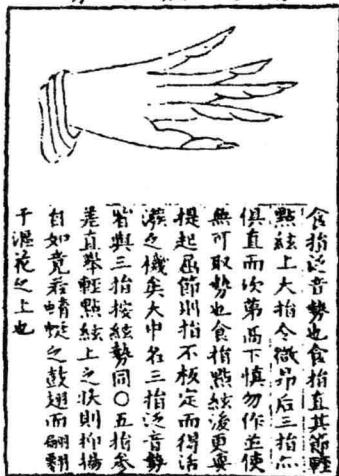 食指泛音勢也食指直其節輕
點絃上大指令微昻后三指亦
俱直而次第高下慎勿作並使
無可取勢也食指點絃後更要
提起屈節則指不板定而得活
潑之儀矣大中名三指泛音勢
皆與三指按絃勢同○五指參
差直舉輕點絃上之後則抑揚
自如竟若蜻蜓之鼓翅而翩翻
于漚花之上也